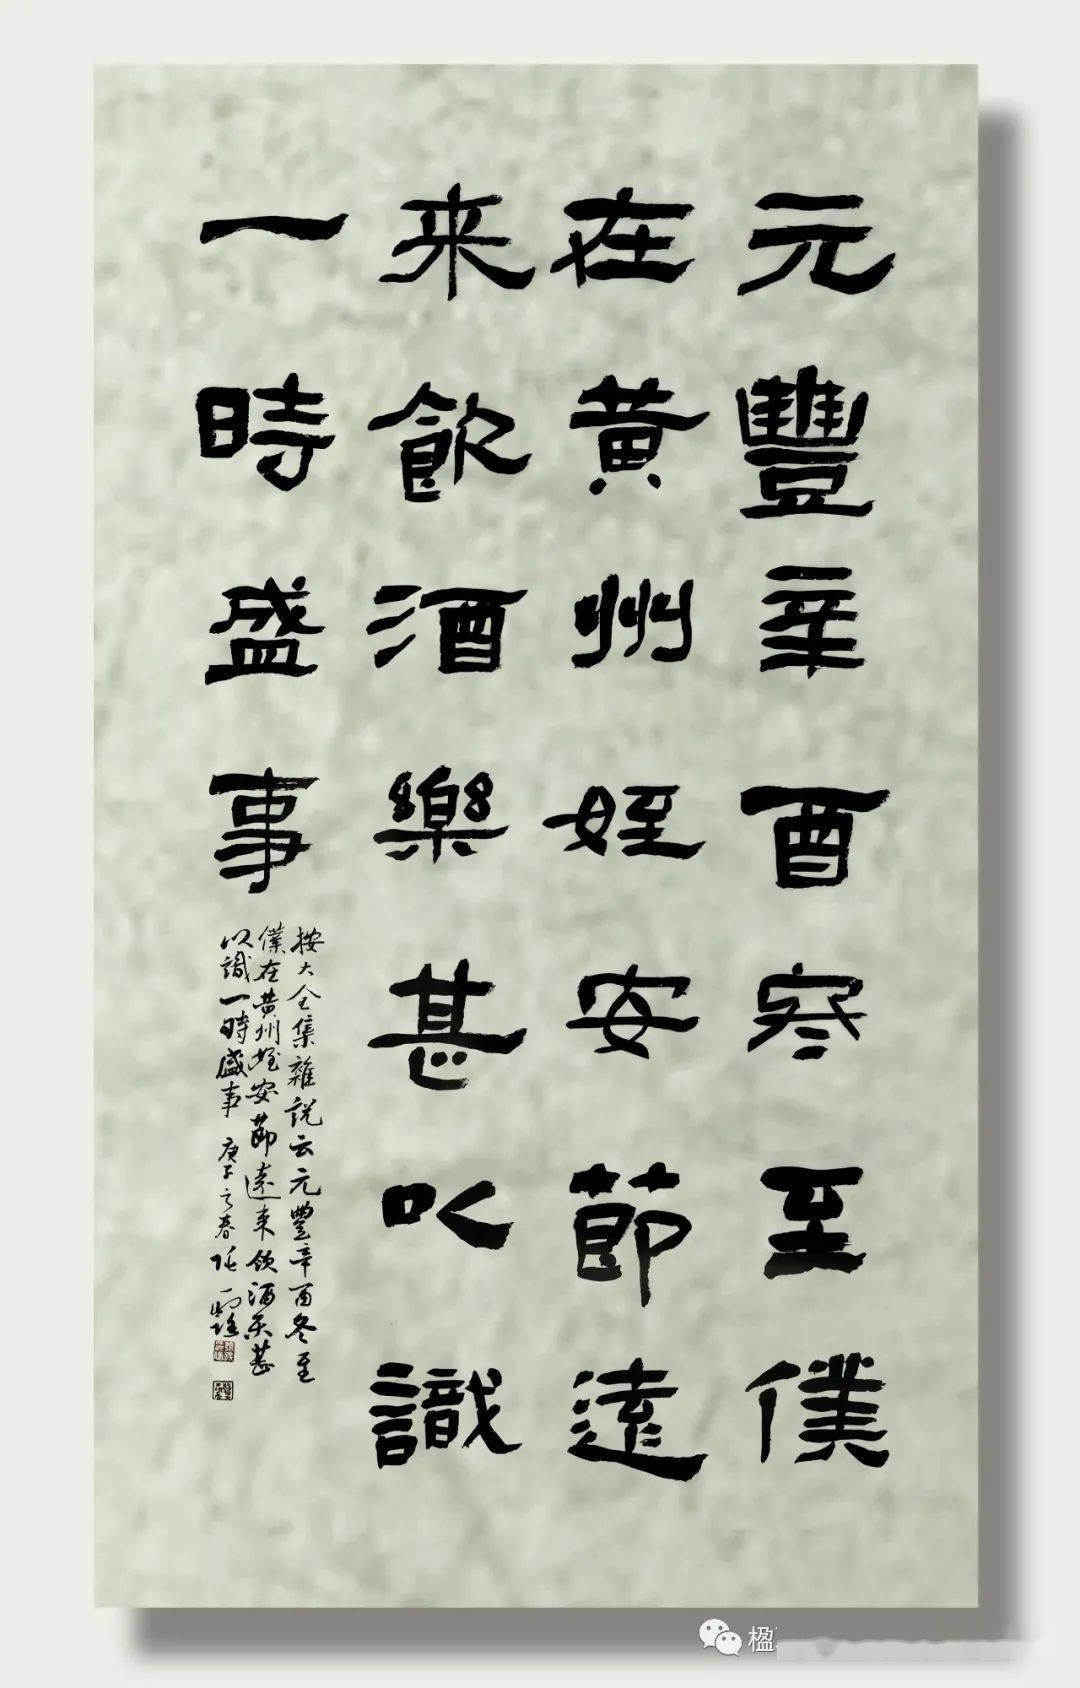 元豐辛酉冬至僕
在黃州姪安節遠
来飲酒樂甚以識
一時盛事
按大全集雜說云元豐辛酉冬至
僕在黄州姪安節遠来飲酒樂甚
以識一時盛事 庚子之春
楹